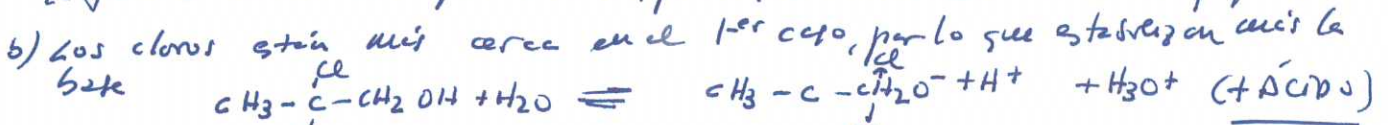 b) Los cloros están más cerca en el 1er caso, por lo que estabilizan más la
base
Cl Cl
CH3-C-CH2OH + H2O ⇌ CH3-C-CH2O⁻ + H⁺ + H3O⁺ (+ÁCIDO)